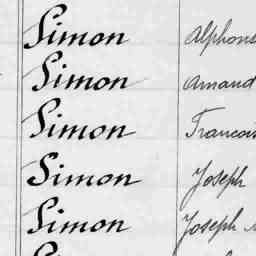 Simon Alphons
Simon Amand
Simon Francois
Simon Joseph
Simon Joseph